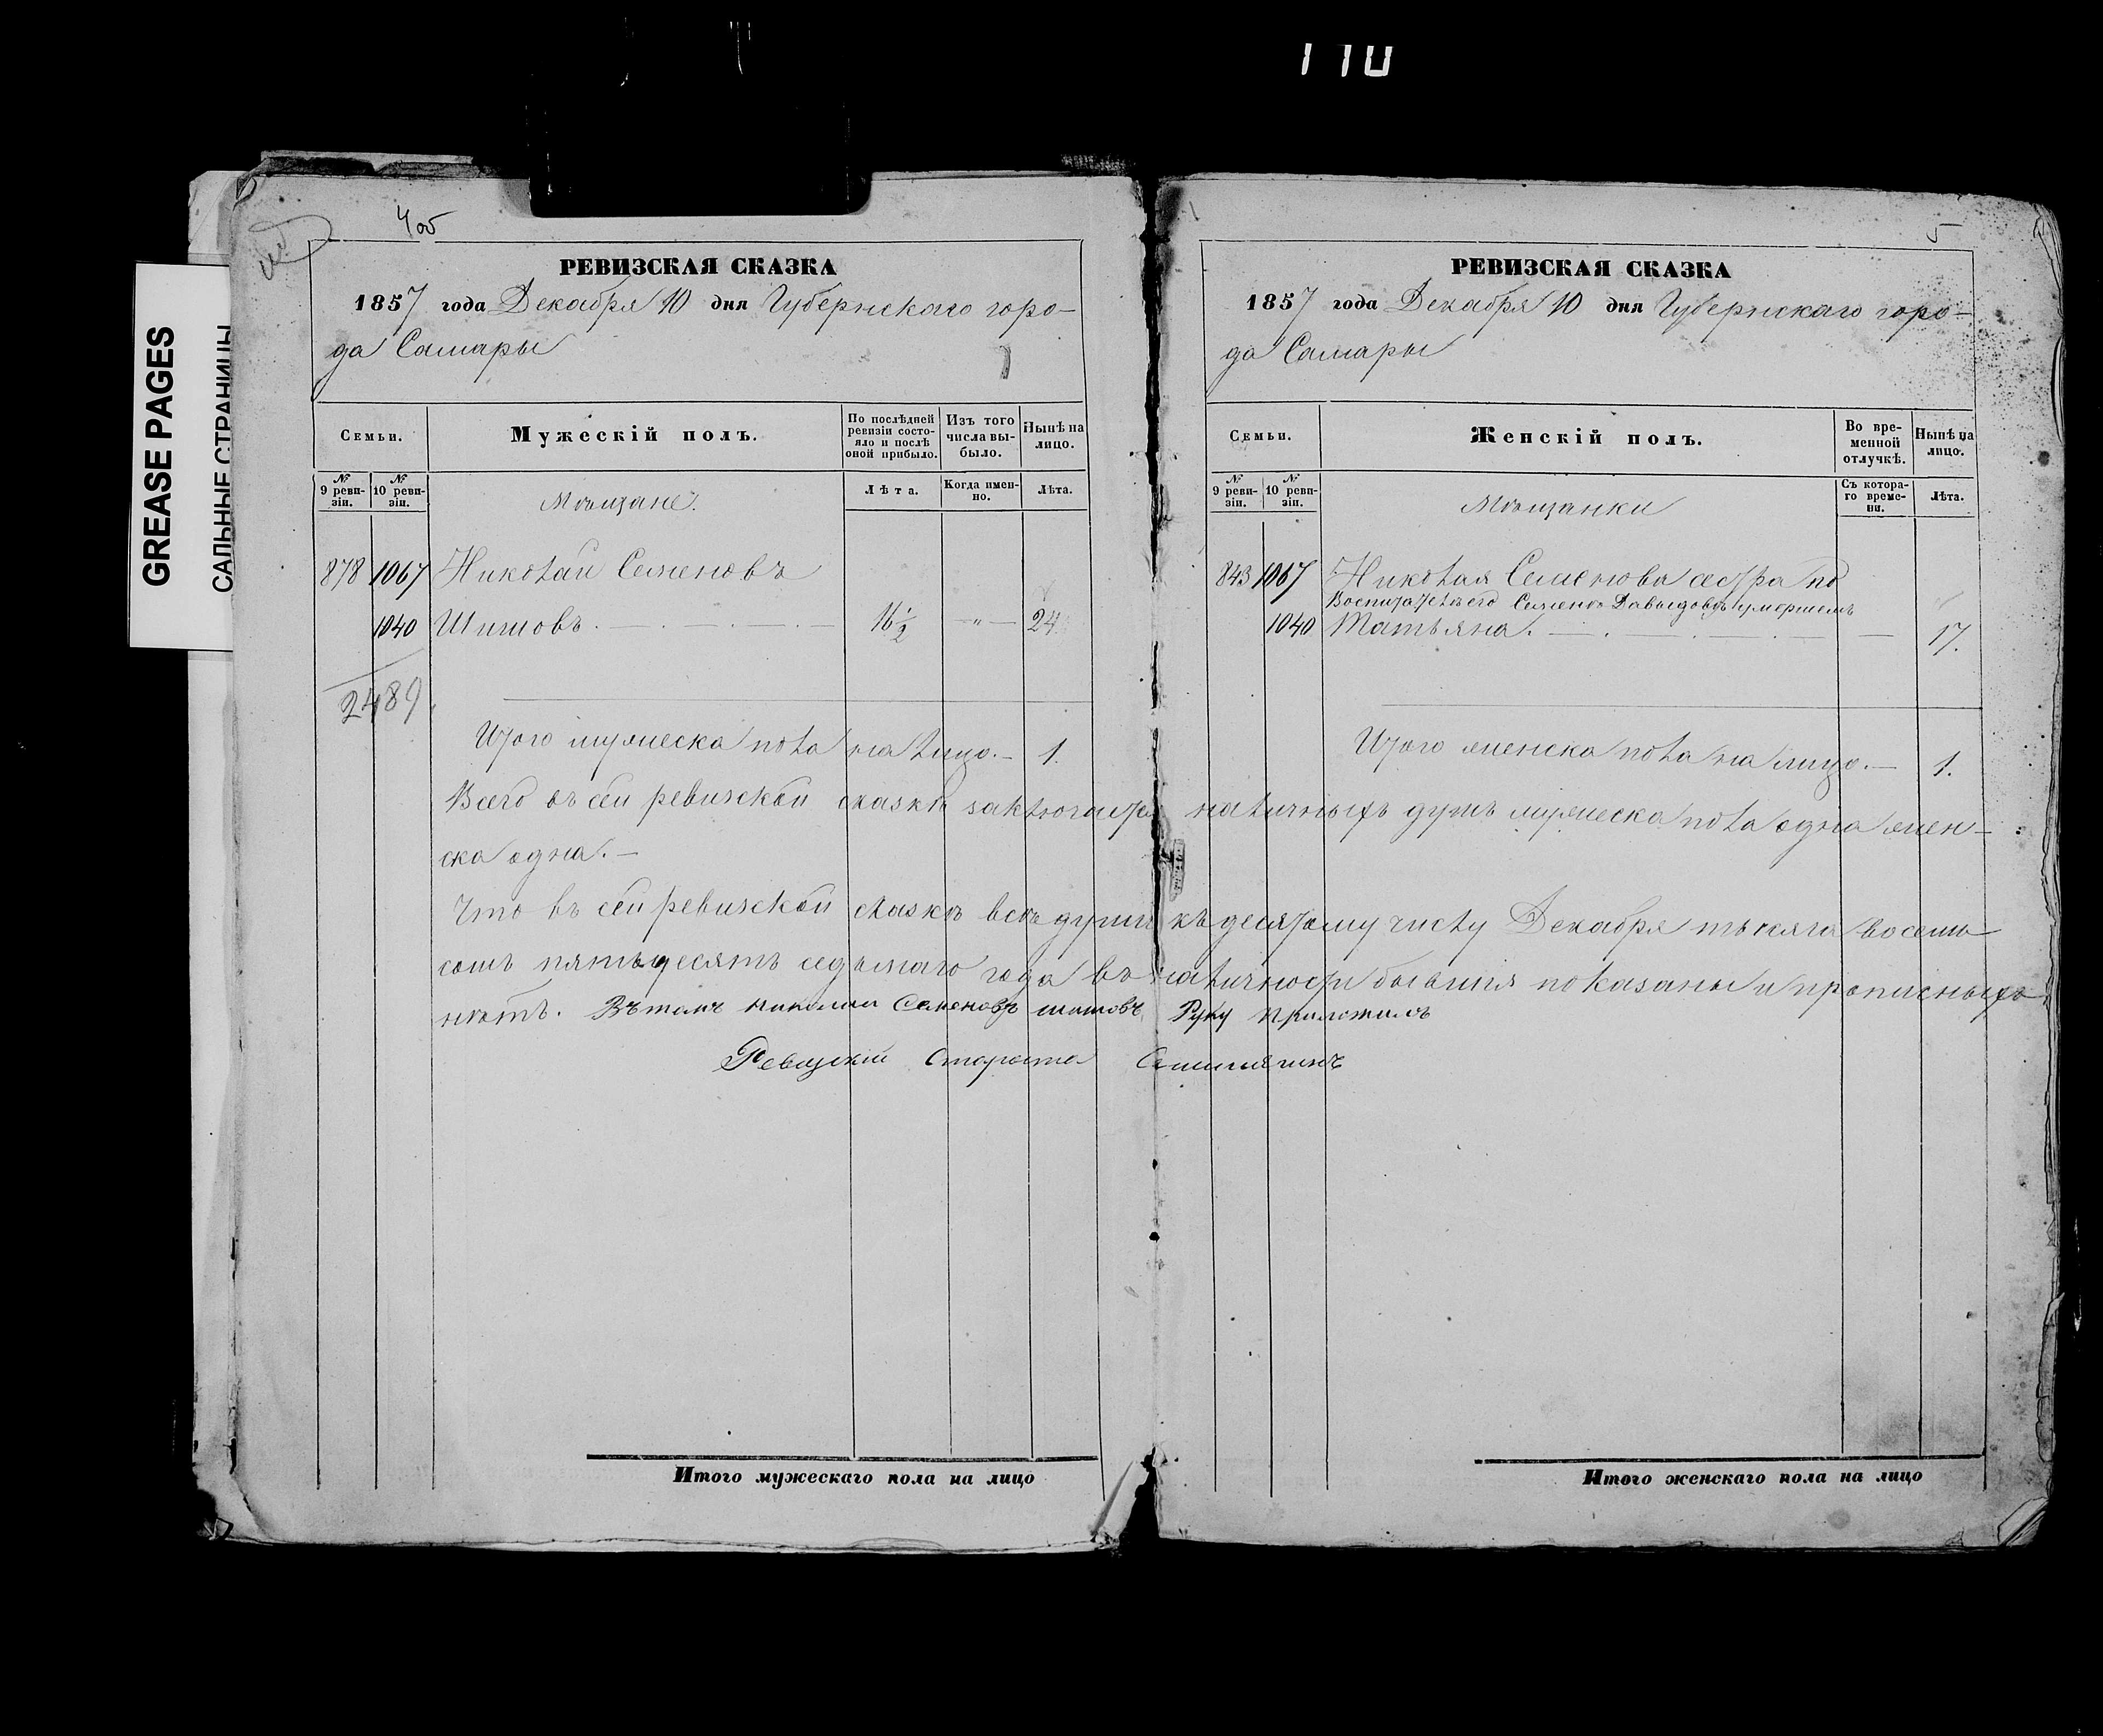 110
GREASE PAGES
САЛЬНЫЕ СТРАНИЦЫ
4об
РЕВИЗСКАЯ СКАЗКА
1857 года Декабря 10 дня Губернскаго горо-
да Самары
Семьи.
Мужескій полъ.
По послѣдней ревизіи состояло и послѣ оной прибыло.
Изъ того числа выбыло.
Нынѣ на лицо.
№ 9 ревизіи.
№ 10 ревизіи.
Мѣщане.
Лѣта.
Когда именно.
Лѣта.
878 1067 Николай Семеновъ
1040 Шишовъ. 16½ — " — 24
2489
Итого мужеска пола на лицо. — 1.
5
РЕВИЗСКАЯ СКАЗКА
1857 года Декабря 10 дня Губернскаго горо-
да Самары
Семьи.
Женскій полъ.
Во временной отлучкѣ.
Нынѣ на лицо.
№ 9 ревизіи.
№ 10 ревизіи.
Мѣщанки
Съ котораго времени.
Лѣта.
843 1067 Николая Семенова сестра по
Воспитателѣ его Семенѣ Давыдовѣ умершемъ
1040 Татьяна. — 17.
Итого женска пола на лицо. — 1.
Всего въ сей ревизской сказкѣ заключается наличныхъ душъ мужеска пола одна жен-
ска одна. —
Что въ сей ревизской сказкѣ всѣ души къ десятому числу Декабря тысяча восемь
сотъ пятьдесятъ седьмаго года въ наличности бывшія показаны и прописныхъ
нѣтъ. Вътомъ николаи Семеновъ шишовъ Руку приложилъ
Ревизскій Староста
Итого мужескаго пола на лицо
Итого женскаго пола на лицо